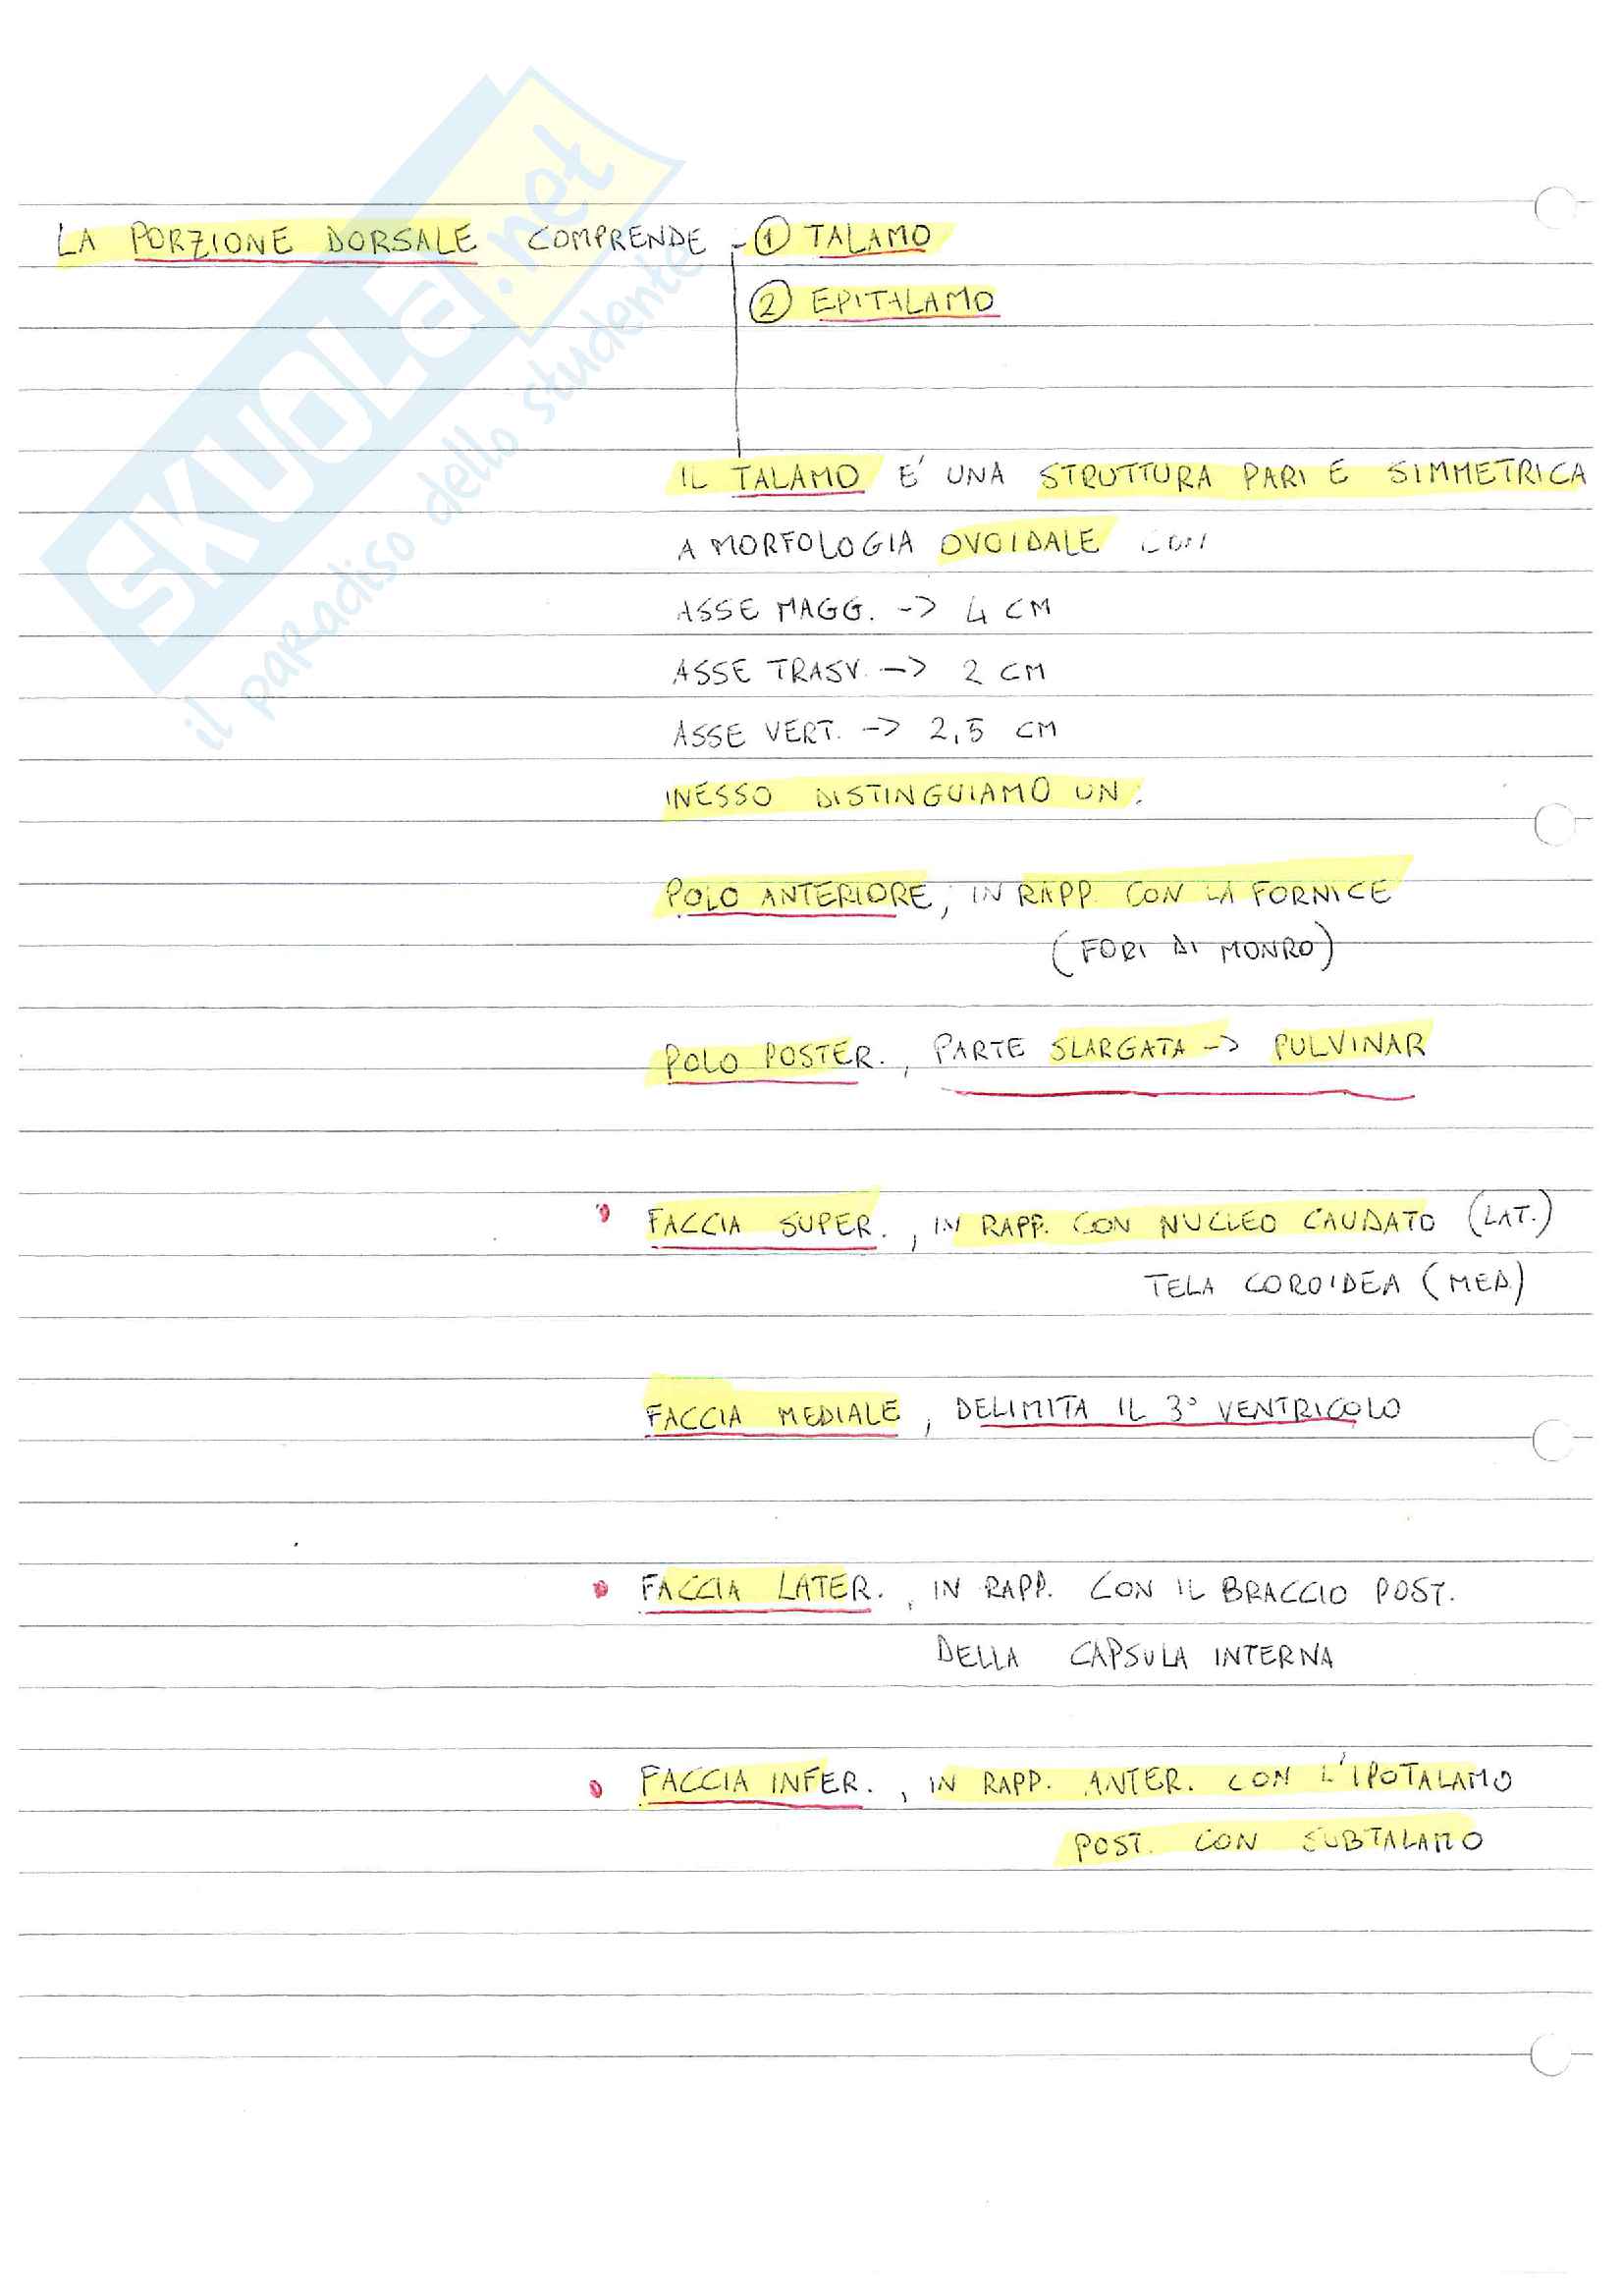 SKUOLA.net
il paradiso dello studente
LA PORZIONE DORSALE COMPRENDE - ① TALAMO
② EPITALAMO
IL TALAMO E' UNA STRUTTURA PARI E SIMMETRICA
A MORFOLOGIA OVOIDALE CON
ASSE MAGG. -> 4 CM
ASSE TRASV. -> 2 CM
ASSE VERT. -> 2,5 CM
INESSO DISTINGUIAMO UN:
POLO ANTERIORE, IN RAPP. CON LA FORNICE
(FORI DI MONRO)
POLO POSTER. , PARTE SLARGATA -> PULVINAR
• FACCIA SUPER. , IN RAPP. CON NUCLEO CAUDATO (LAT.)
TELA COROIDEA (MED.)
FACCIA MEDIALE , DELIMITA IL 3° VENTRICOLO
• FACCIA LATER. , IN RAPP. CON IL BRACCIO POST.
DELLA CAPSULA INTERNA
• FACCIA INFER. , IN RAPP. ANTER. CON L'IPOTALAMO
POST. CON SUBTALAMO